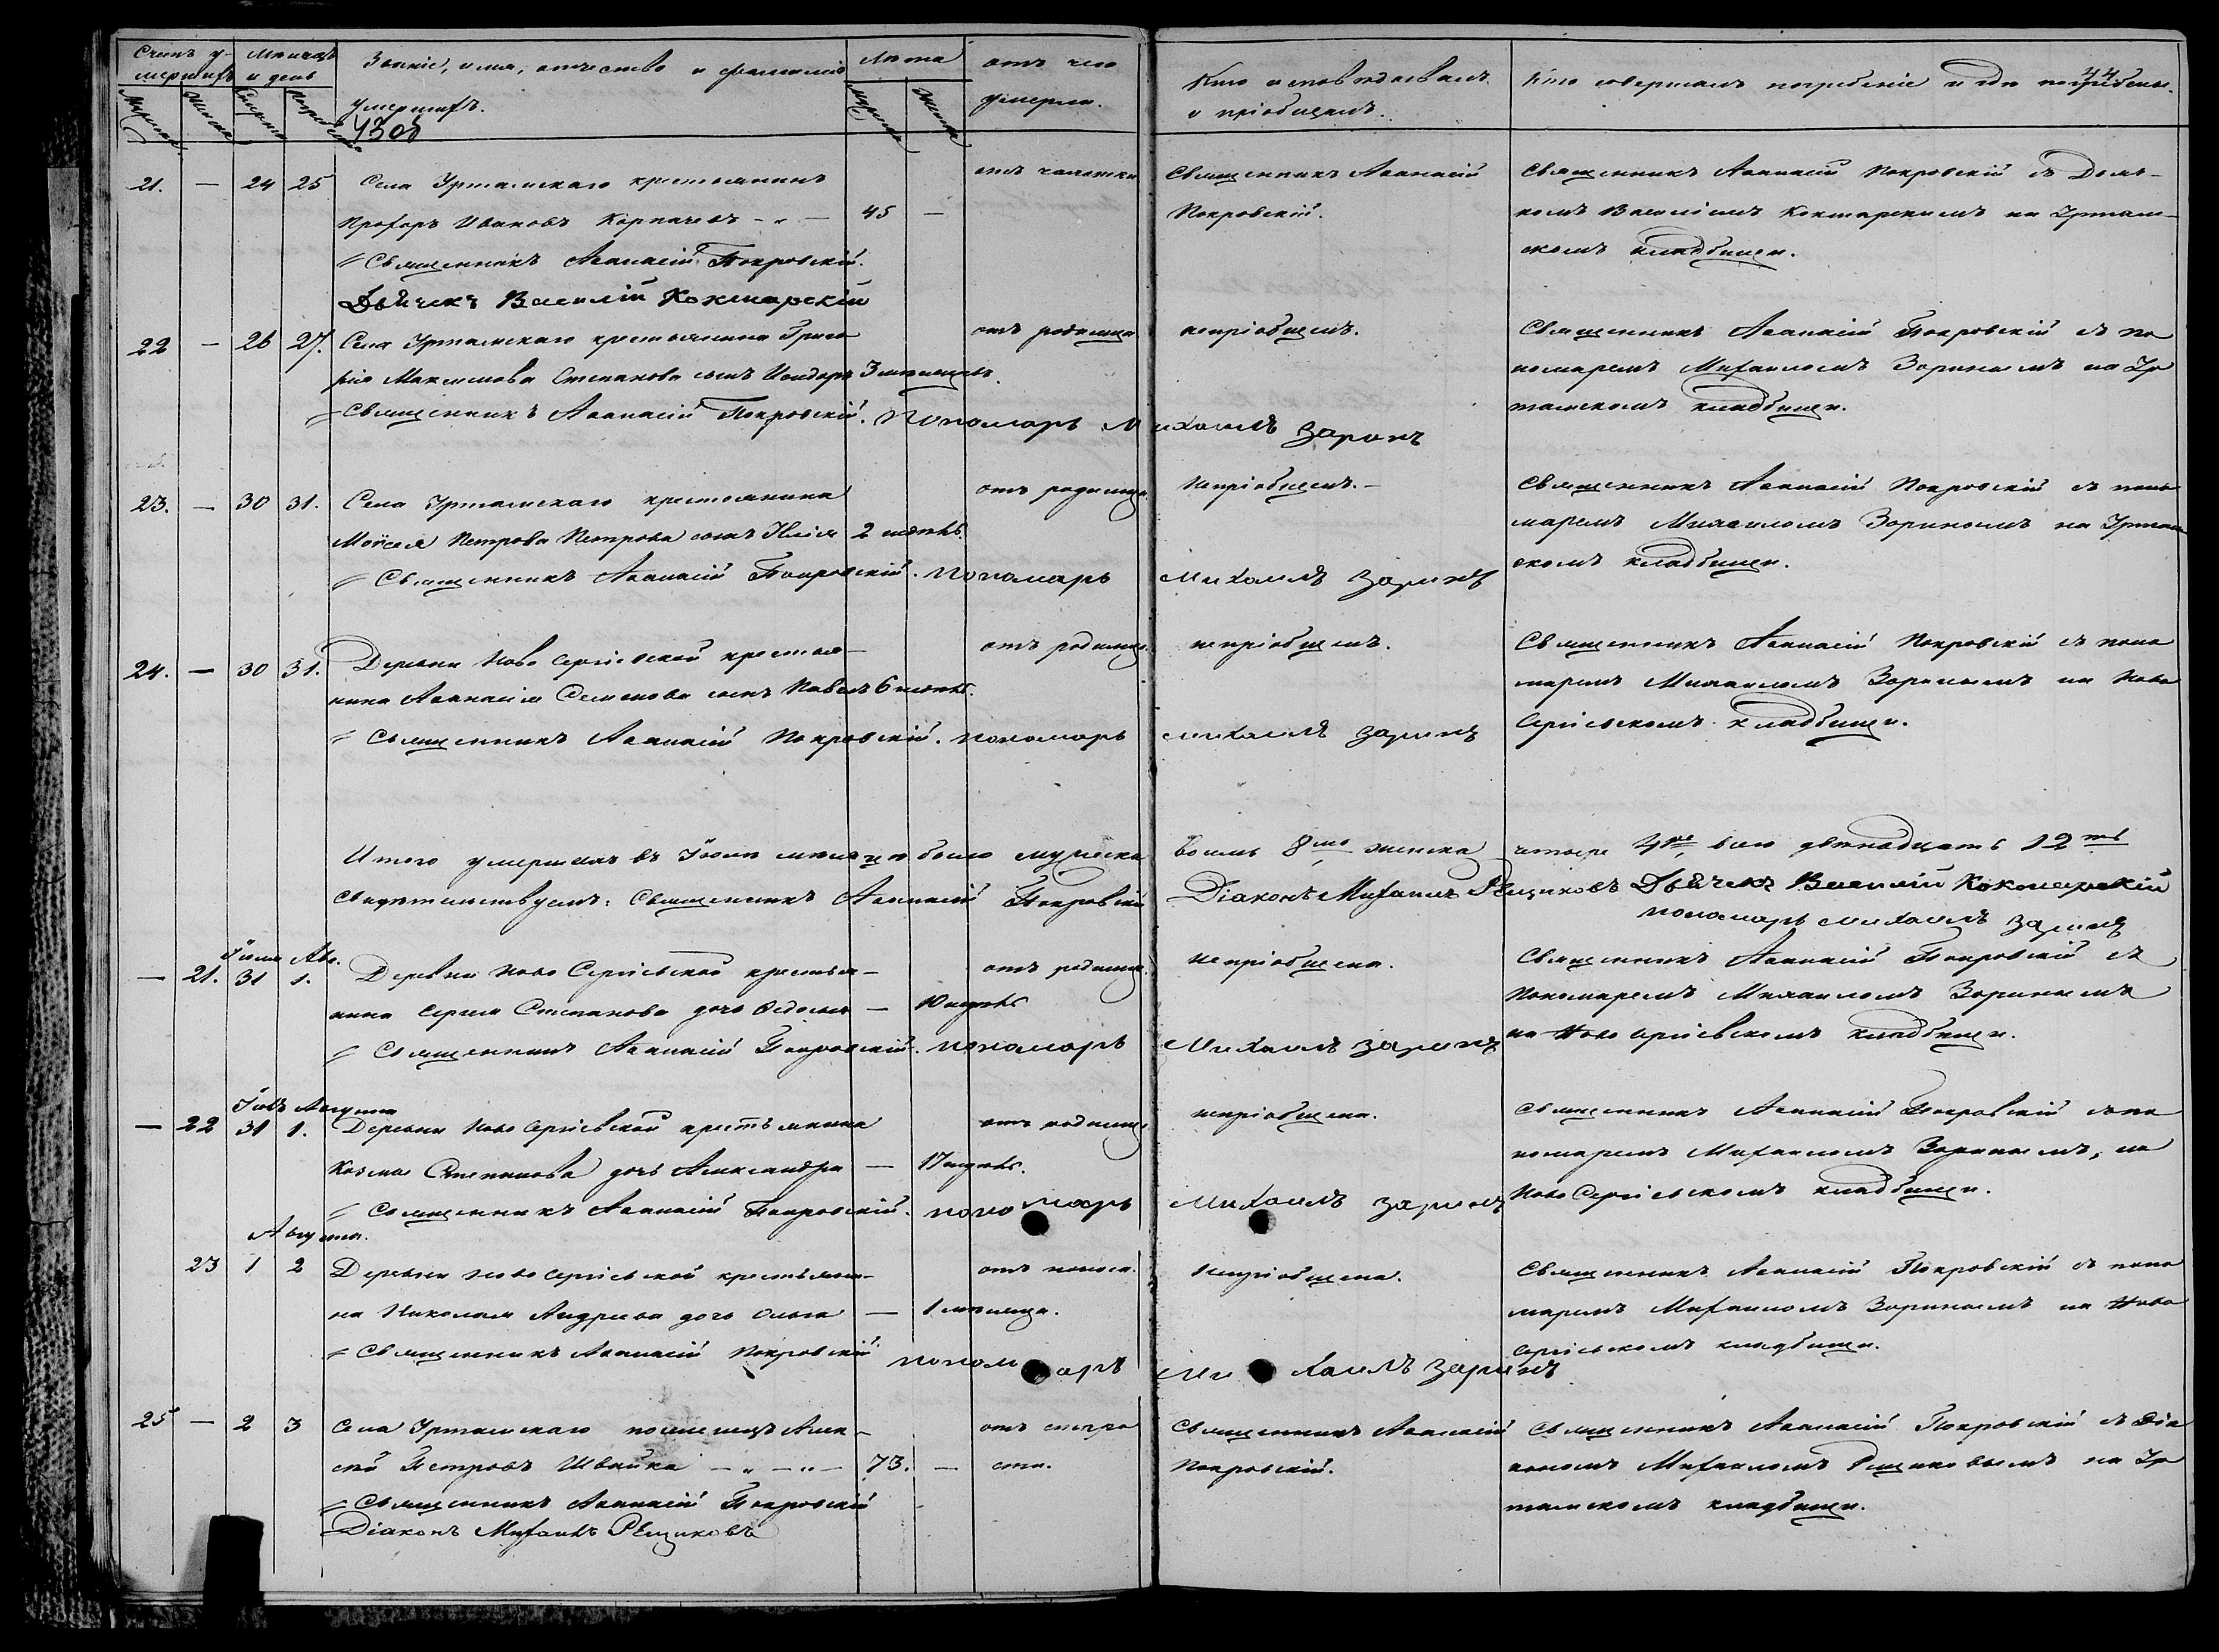 Счетъ умершихъ
Мѣсяцъ и день
Званіе, имя, отчество и фамилія умершихъ.
Лѣта
отъ чего умерли.
Кто исповѣдывалъ и пріобщалъ.
Кто совершалъ погребеніе и гдѣ погребены.
44
430б
21. — 24 25 Села Уртамскаго крестьянинъ отъ чахотки Священникъ Аѳанасій Священникъ Аѳанасій Покровскій съ Дьяч-
Прохоръ Ивановъ Корпачевъ — 45 — Покровскій. комъ Василіемъ Кокшарскимъ на Уртам-
Священникъ Аѳанасій Покровскій. скомъ кладбищѣ.
Дьячекъ Василій Кокшарскій
22 — 26 27. Села Уртамскаго крестьянина Григо отъ родимца непріобщенъ. Священникъ Аѳанасій Покровскій съ по
рія Максимова Степанова сынъ Исидоръ 3 мѣсяцевъ номаремъ Михаиломъ Зоринымъ на Ур
Священникъ Аѳанасій Покровскій. Пономарь Михаилъ Заринъ тамскомъ кладбищѣ.
23. — 30 31. Села Уртамскаго крестьянина отъ родимца непріобщенъ. — Священникъ Аѳанасій Покровскій съ поно
Моисея Петрова Петрова сынъ Илія 2 недѣль. маремъ Михаиломъ Зоринымъ на Уртам
Священникъ Аѳанасій Покровскій. пономарь Михаилъ Заринъ скомъ кладбищѣ.
24. — 30 31. Деревни Ново Сергіевской крестья- отъ родимца непріобщенъ. Священникъ Аѳанасій Покровскій съ поно
нина Аѳанасія Семенова сынъ Павелъ 6 недѣль. маремъ Михаиломъ Зоринымъ на Ново
Священникъ Аѳанасій Покровскій. пономарь Михаилъ Заринъ Сергіевскомъ кладбищѣ.
Итого умершихъ въ Іюлѣ мѣсяцѣ было мужеска восемь 8мь женска четыре 4ре, всего двѣнадцать 12ть
Свидѣтельствуемъ: Священникъ Аѳанасій Покровскій Діаконъ Михаилъ Рѣщиковъ Дьячекъ Василій Кокшарскій
пономарь Михаилъ Заринъ
Іюля Авг.
— 21. 31 1. Деревни Ново Сергіевской крестья- отъ родимца непріобщена. Священникъ Аѳанасій Покровскій съ
нина Сергія Степанова дочь Ѳедосья — 10 недѣль Пономаремъ Михаиломъ Зоринымъ
Священникъ Аѳанасій Покровскій. пономарь Михаилъ Заринъ на Ново Сергіевскомъ кладбищѣ.
Августа
— 22 31 1. Деревни Ново Сергіевской крестьянина отъ родимца непріобщена. Священникъ Аѳанасій Покровскій съ по
Козмы Степанова дочь Александра — 17 недѣль. номаремъ Михаиломъ Зоринымъ, на
Священникъ Аѳанасій Покровскій. пономарь Михаилъ Заринъ Ново Сергіевскомъ кладбищѣ.
Августа.
23 1 2 Деревни Ново Сергіевской крестьяни- отъ поноса. непріобщена. Священникъ Аѳанасій Покровскій съ поно
на Николая Андреева дочь Ольга — 1 мѣсяца. маремъ Михаиломъ Зоринымъ на Ново
Священникъ Аѳанасій Покровскій. пономарь Михаилъ Заринъ Сергіевскомъ кладбищѣ.
25 — 2 3 Села Уртамскаго Алек- отъ старо Священникъ Аѳанасій Священникъ Аѳанасій Покровскій съ Діа
сѣй Петровъ Швайка — 73. — сти. Покровскій. кономъ Михаиломъ Рѣщиковымъ на Ур
Священникъ Аѳанасій Покровскій тамскомъ кладбищѣ.
Діаконъ Михаилъ Рѣщиковъ